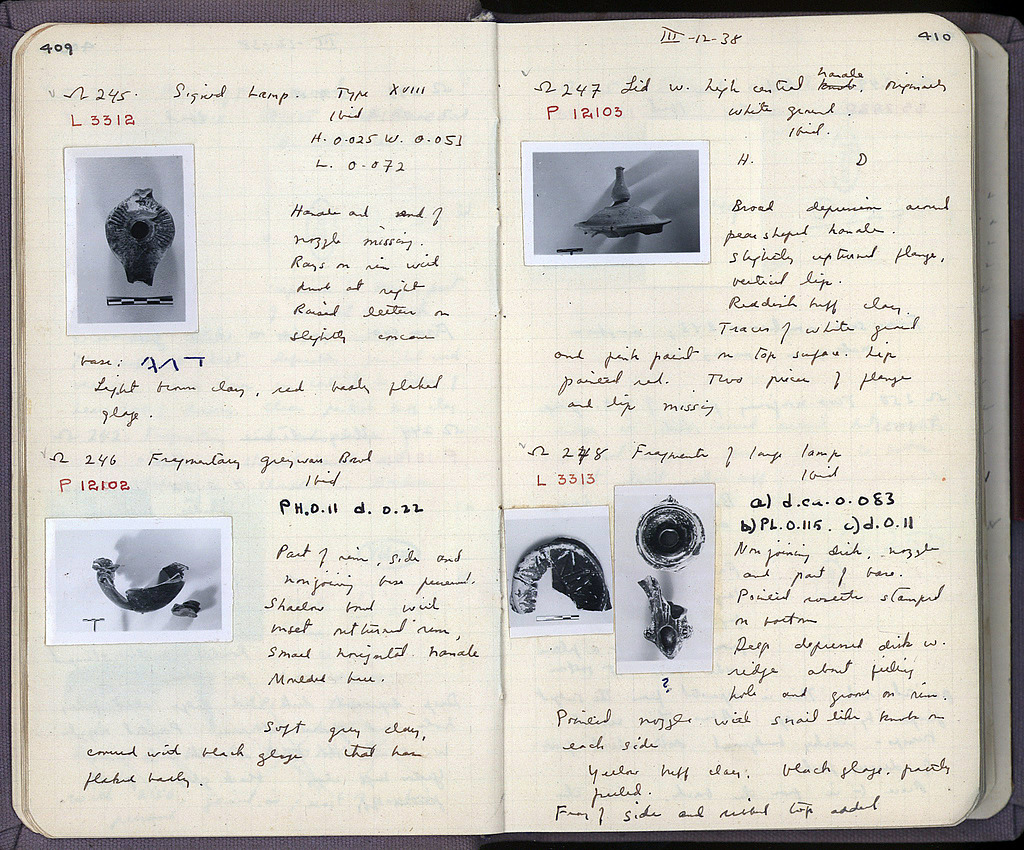 409
Ω 245. Signed Lamp Type XVIII
L 3312
Ibid
H. 0.025 W. 0.051
L. 0.072
Handle and end of
nozzle missing.
Rays on rim with
dot at right
Raised letters on
slightly concave
base:
Light brown clay, red badly flaked
glaze.
Ω 246 Fragmentary grey ware Bowl
P 12102
Ibid
PH. 0.11 d. 0.22
Part of rim, side and
nonjoining base preserved.
Shallow bowl with
inset outturned rim,
Small horizontal handle
Moulded base.
Soft grey clay,
covered with black glaze that has
flaked badly.
III-12-38
410
Ω 247 Lid w. high central knob, originally
handle
P 12103
white ground.
Ibid.
H. D
Broad depression around
pear shaped handle.
Slightly upturned flange,
vertical lip.
Reddish buff clay.
Traces of white ground
and pink paint on top surface. Lip
painted red. Two pieces of flange
and lip missing
Ω 248 Fragments of large lamp
L 3313
Ibid
a) d.ca. 0.083
b) PL. 0.115. c) d. 0.11
Non joining disk, nozzle
and part of base.
Pointed rosette stamped
on bottom
Deep depressed disk w.
ridge about filling
hole and groove on rim.
?
Pointed nozzle with snail like knob on
each side
Yellow buff clay. black glaze. partly
peeled.
Frag of side and ribbed top added